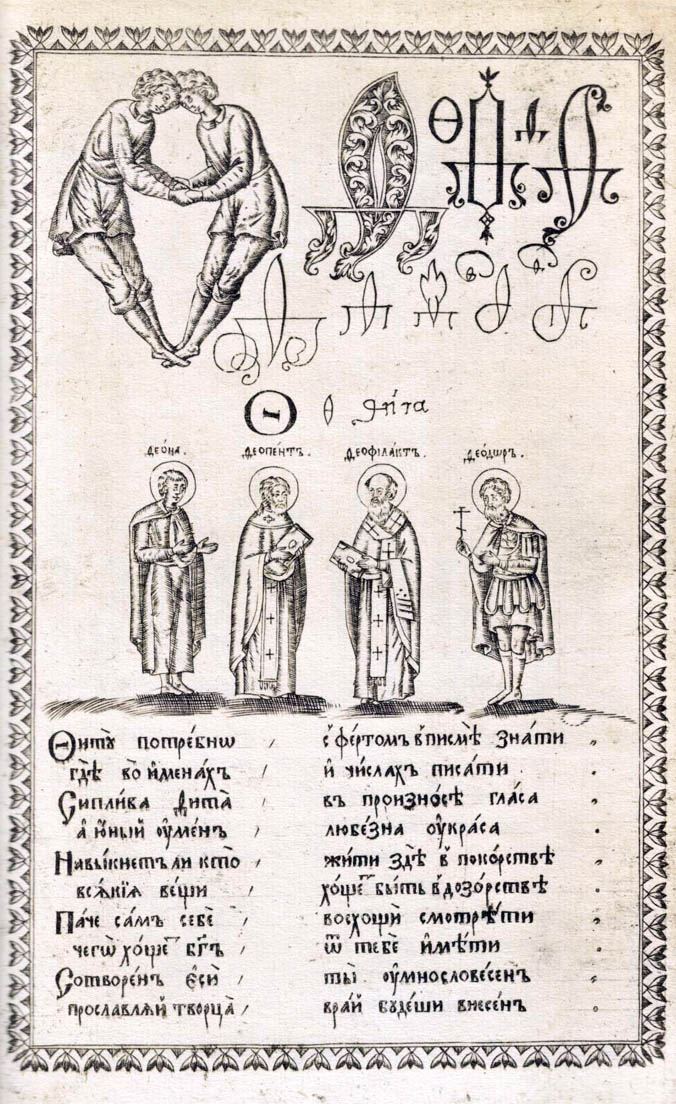 Ѳ ѳ ѳи́та
Ѳео́на.
Ѳеопе́нтъ.
Ѳеофіла́ктъ.
Ѳео́дѡръ.
Ѳитꙋ̀ потре́бнѡ , с̾ фе́ртомъ в̾писмѣ̀ зна́ти ,
гдѣ̀ во и҆мена́хъ / и҆ чи́слахъ писа́ти .
Сипли́ва ѳита̀ / въ произно́сѣ гла́са ,
а҆ ю҆́ный ᲂу҆ме́нъ / любе́зна ᲂу҆кра́са .
Навы́кнетъ ли кто̀ / жи́ти здѣ̀ в̾ поко́рствѣ ,
вся́кїѧ ве́щи / хо́щетъ бы́ть в̾дозо́рствѣ .
Па́че са́мъ себѐ / восхощѝ смотрѣ́ти ,
чегѡ̀ хо́щетъ бг҃ъ / ѿ тебѐ и҆мѣ́ти .
Сотворе́нъ є҆сѝ / ты̀ ᲂу҆мнослове́сенъ ,
прославлѧ́й творца̀ / вра́й бꙋ́деши внесе́нъ .